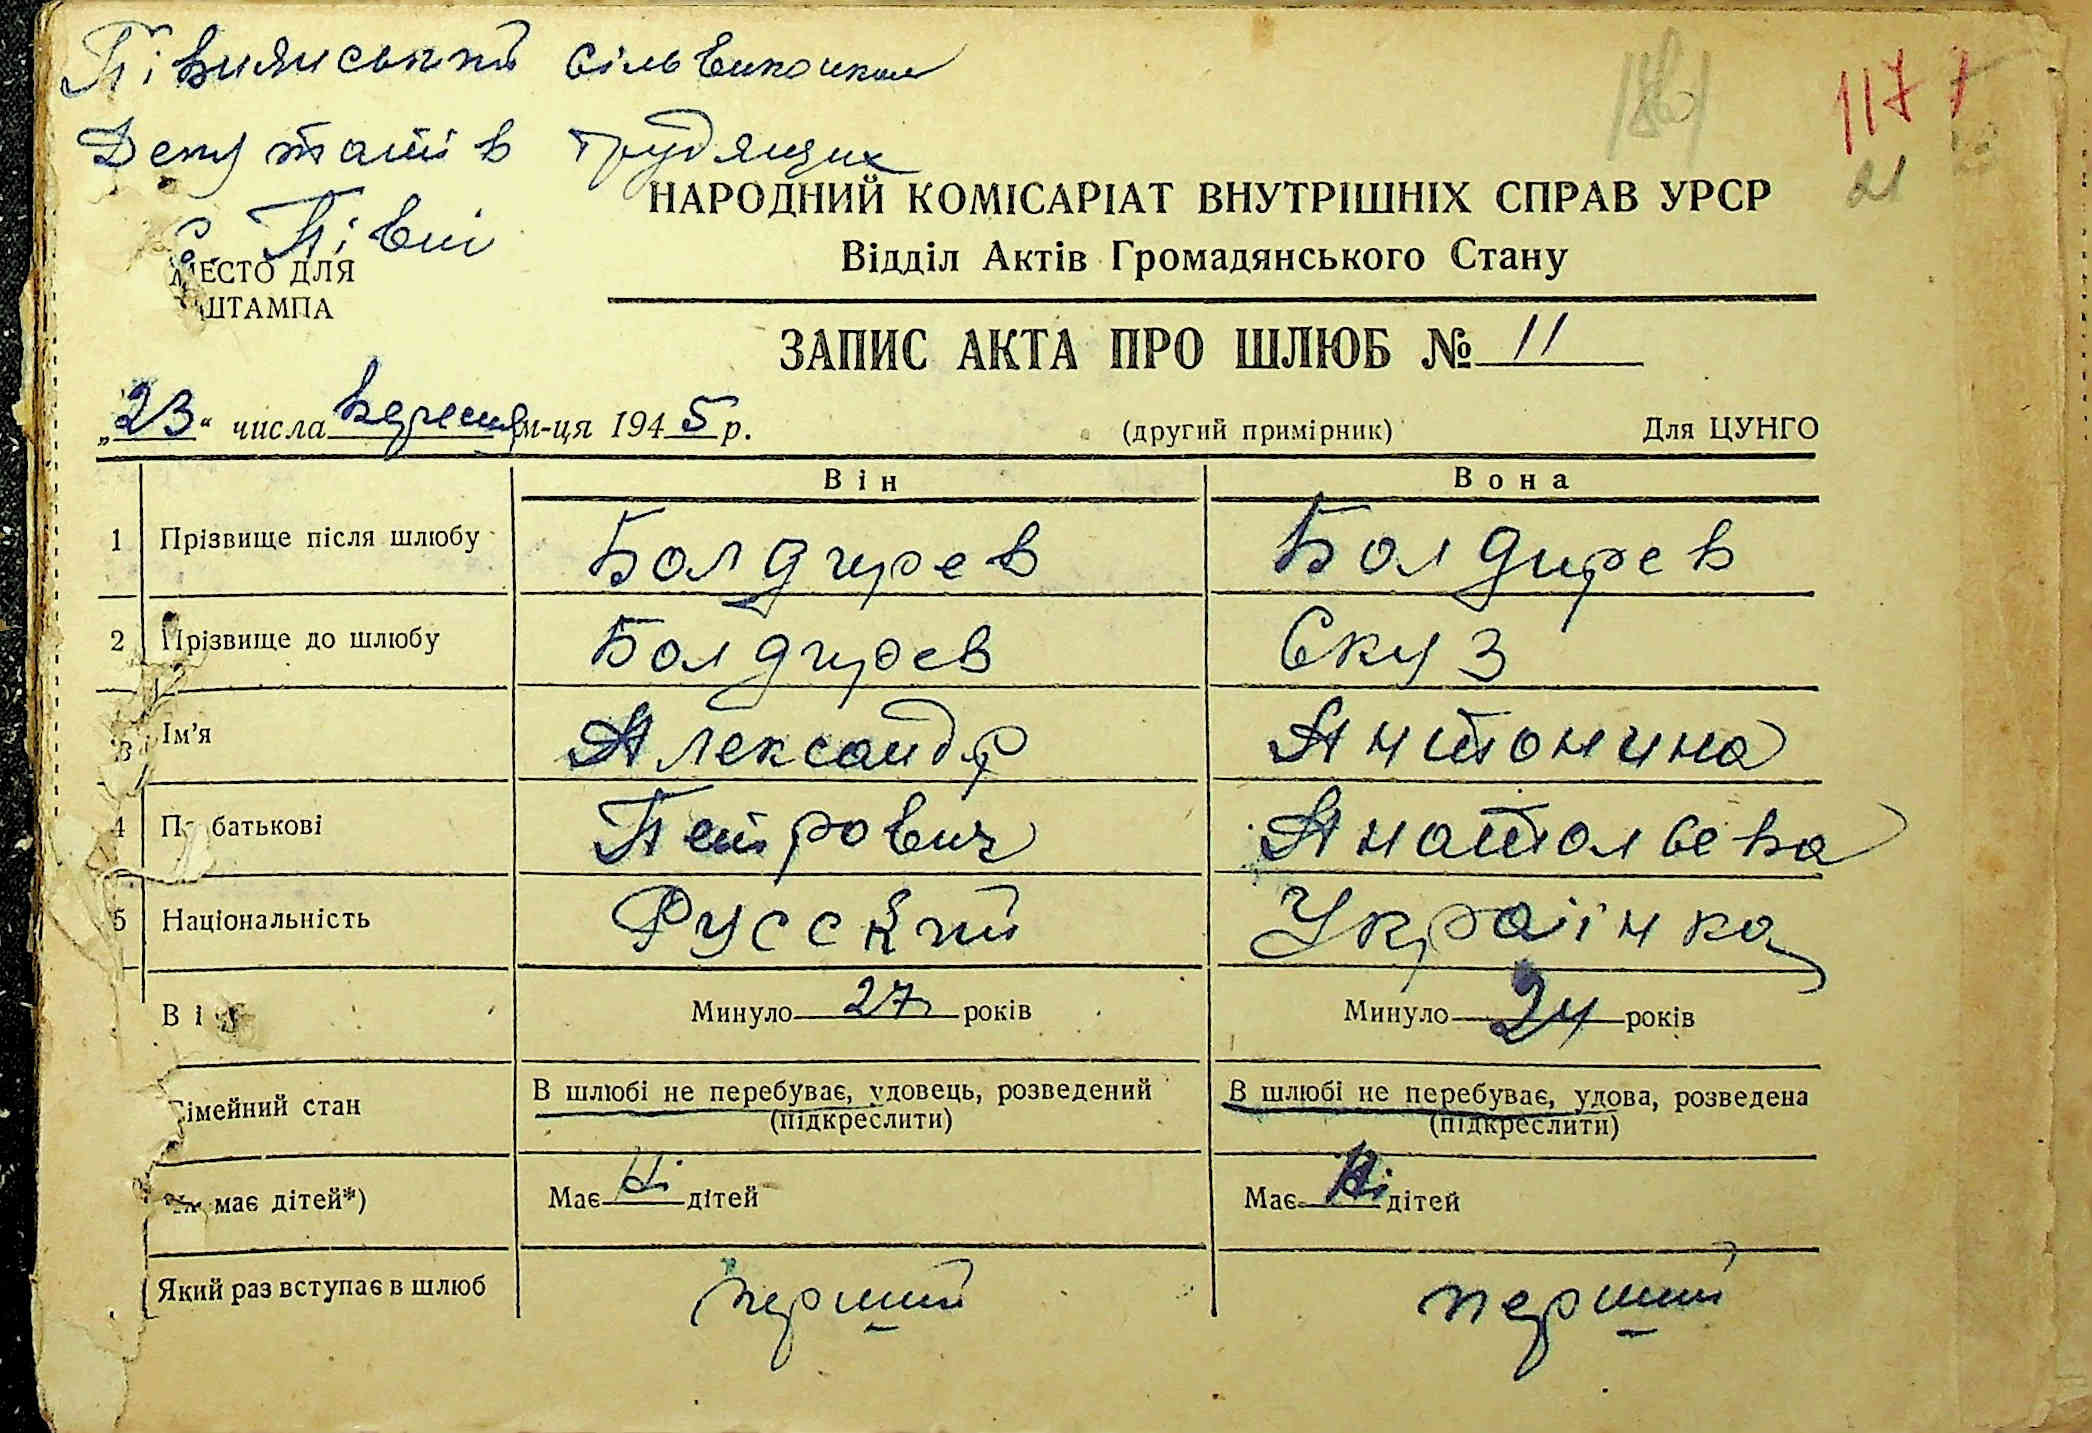 Півнянський сільвиконком
Депутатів трудящих
с. Півні
МЕСТО ДЛЯ
ШТАМПА
117
21
НАРОДНИЙ КОМІСАРІАТ ВНУТРІШНІХ СПРАВ УРСР
Відділ Актів Громадянського Стану
ЗАПИС АКТА ПРО ШЛЮБ № 11
„23“ числа вересня м-ця 1945 р. (другий примірник) Для ЦУНГО
Він Вона
1 Прізвище після шлюбу Болдирев Болдирев
2 Прізвище до шлюбу Болдирев Скуз
3 Ім'я Александр Антонина
4 По батькові Петрович Анатольевна
5 Національність Русский Українка
Вік Минуло 27 років Минуло 24 років
Сімейний стан В шлюбі не перебуває, удовець, розведений В шлюбі не перебуває, удова, розведена
(підкреслити) (підкреслити)
Чи має дітей*) Має Ні дітей Має Ні дітей
Який раз вступає в шлюб перший перший